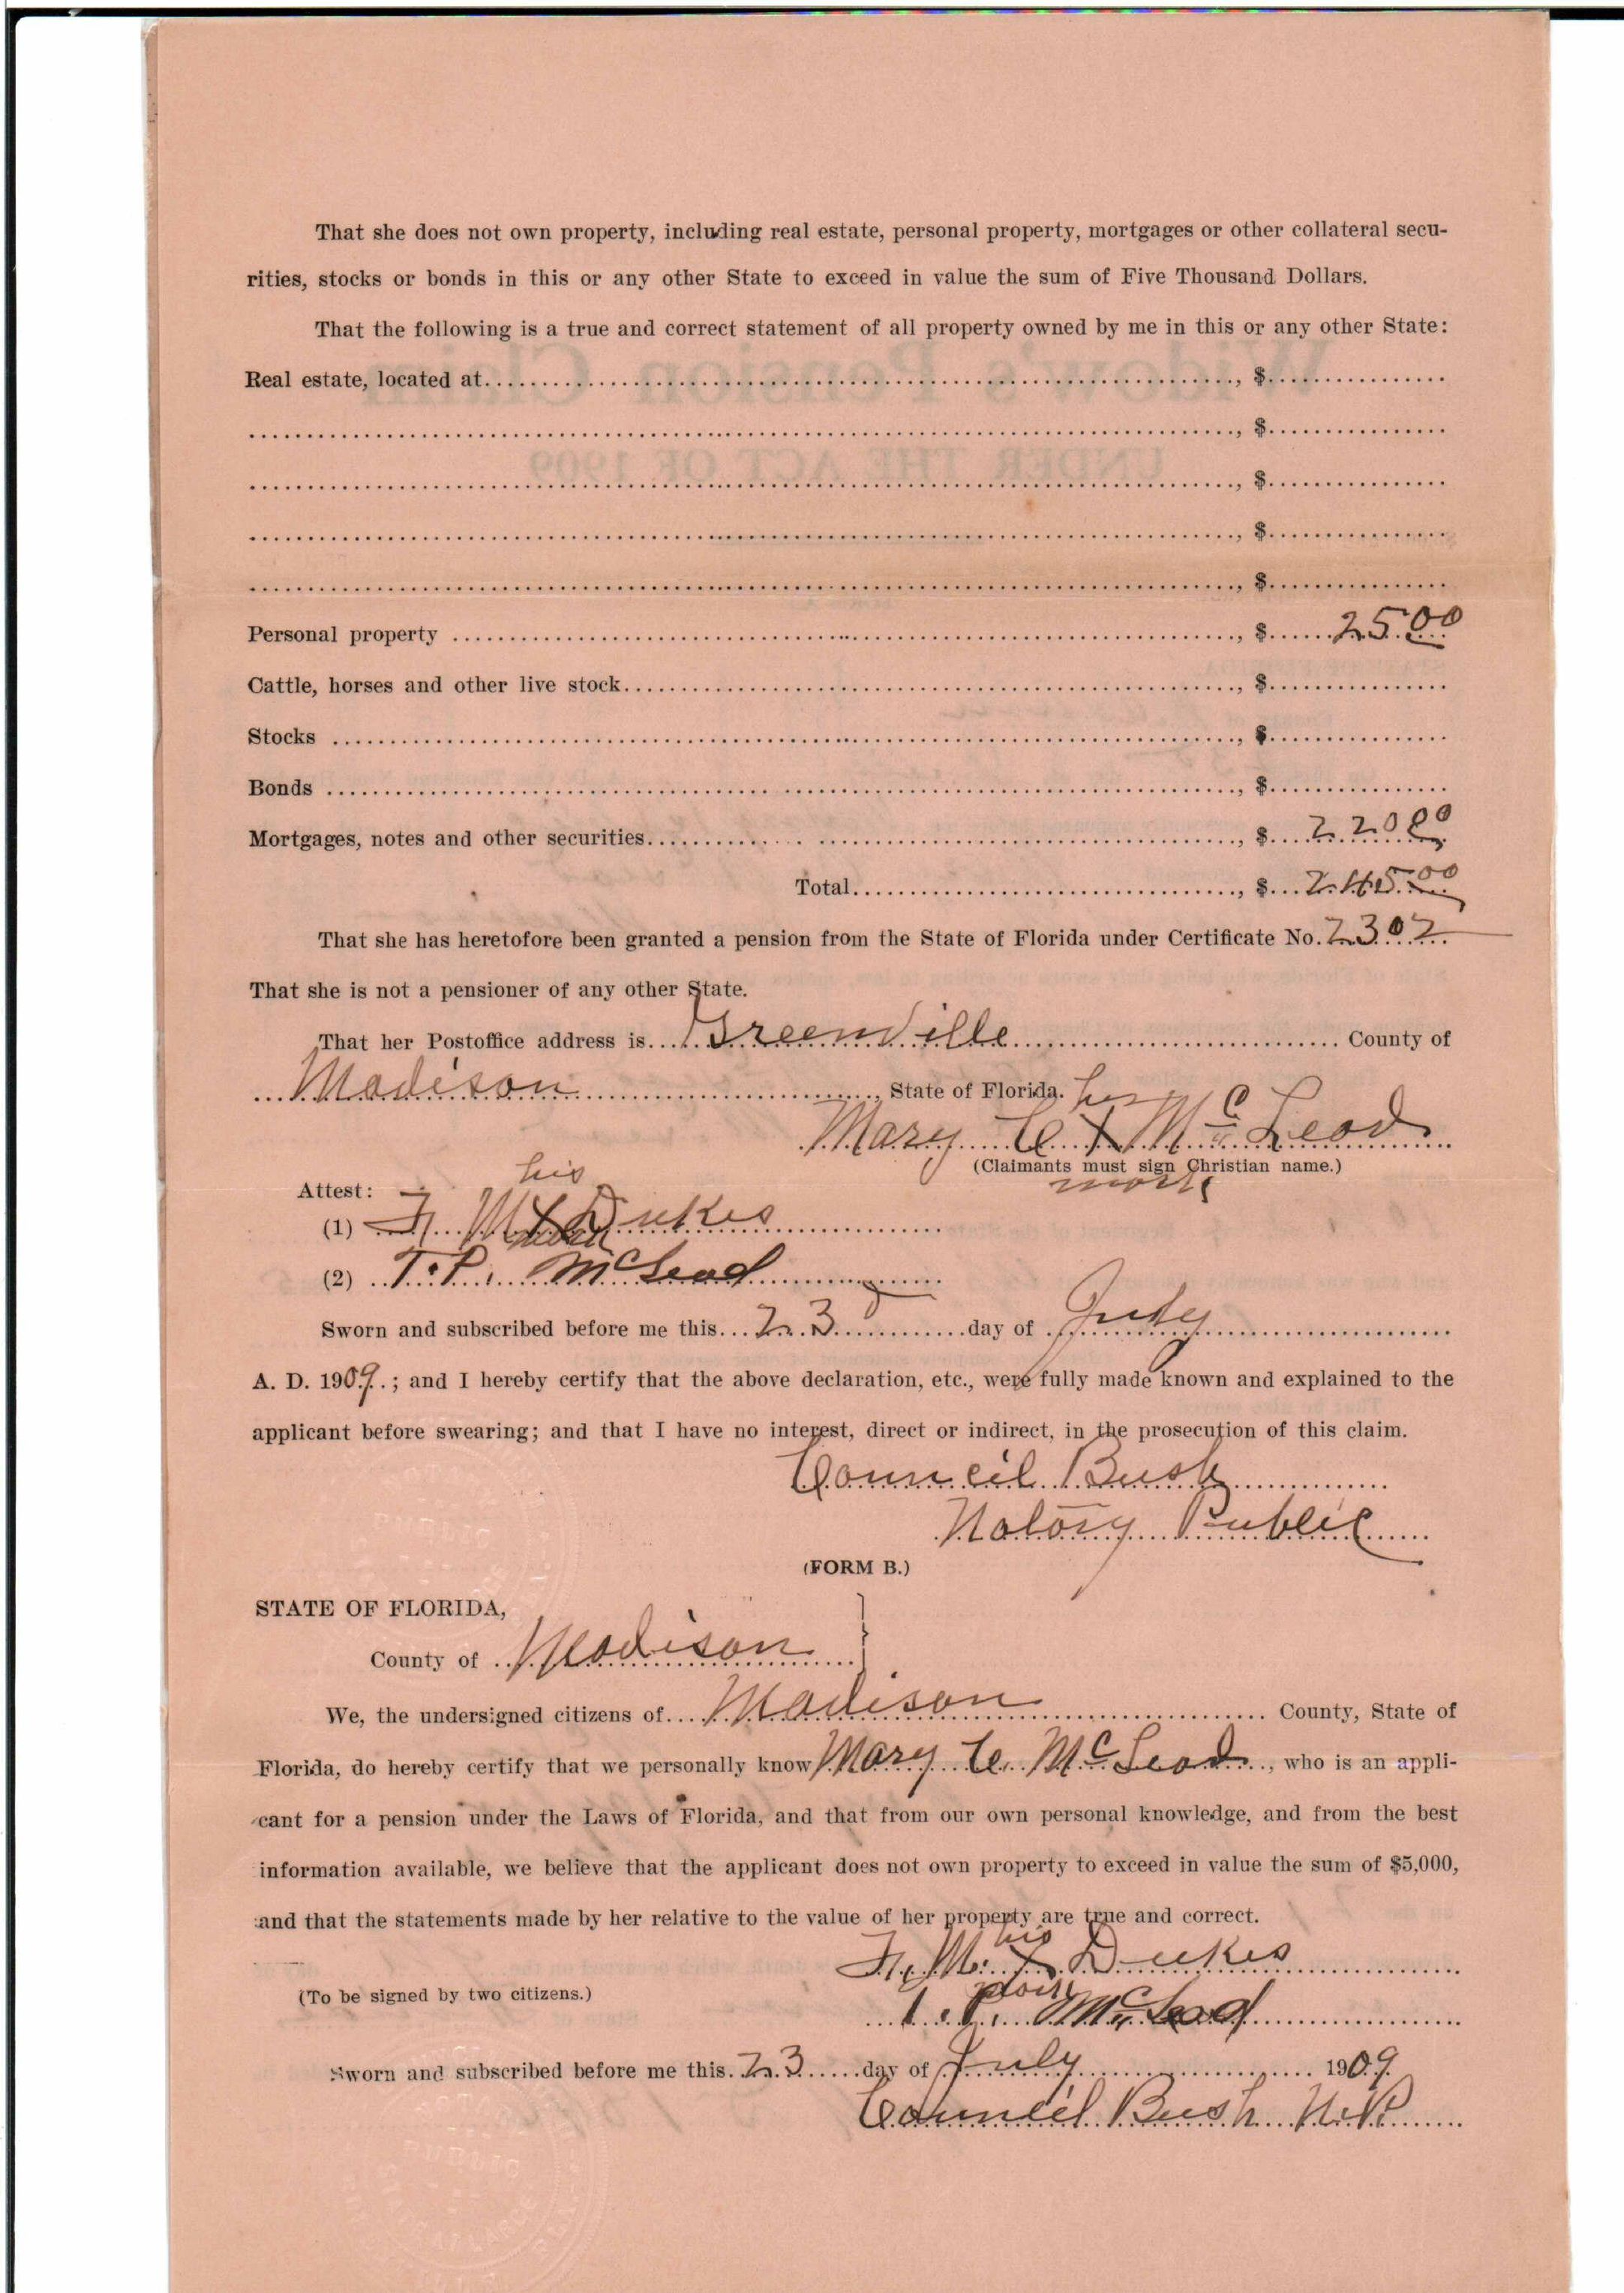 That she does not own property, including real estate, personal property, mortgages or other collateral secu-
rities, stocks or bonds in this or any other State to exceed in value the sum of Five Thousand Dollars.
That the following is a true and correct statement of all property owned by me in this or any other State:
Real estate, located at........................................, $................
........................................, $................
........................................, $................
........................................, $................
........................................, $................
Personal property ........................................, $ 25.00
Cattle, horses and other live stock........................................, $................
Stocks ........................................, $................
Bonds ........................................, $................
Mortgages, notes and other securities........................................, $ 220.00
Total........................................, $ 245.00
That she has heretofore been granted a pension from the State of Florida under Certificate No. 2302
That she is not a pensioner of any other State.
That her Postoffice address is Greenville County of
Madison, State of Florida.
her
Mary C X McLeod
(Claimants must sign Christian name.)
mark
Attest:
his
(1) F. M. X Dukes
mark
(2) T. P. McLeod
Sworn and subscribed before me this 23 day of July
A. D. 1909.; and I hereby certify that the above declaration, etc., were fully made known and explained to the
applicant before swearing; and that I have no interest, direct or indirect, in the prosecution of this claim.
Council Bush
Notary Public
(FORM B.)
STATE OF FLORIDA,
County of Madison
We, the undersigned citizens of Madison County, State of
Florida, do hereby certify that we personally know Mary C. McLeod, who is an appli-
cant for a pension under the Laws of Florida, and that from our own personal knowledge, and from the best
information available, we believe that the applicant does not own property to exceed in value the sum of $5,000,
and that the statements made by her relative to the value of her property are true and correct.
his
F. M. X Dukes
(To be signed by two citizens.)
T. P. McLeod
Sworn and subscribed before me this 23 day of July 1909
Council Bush N.P.